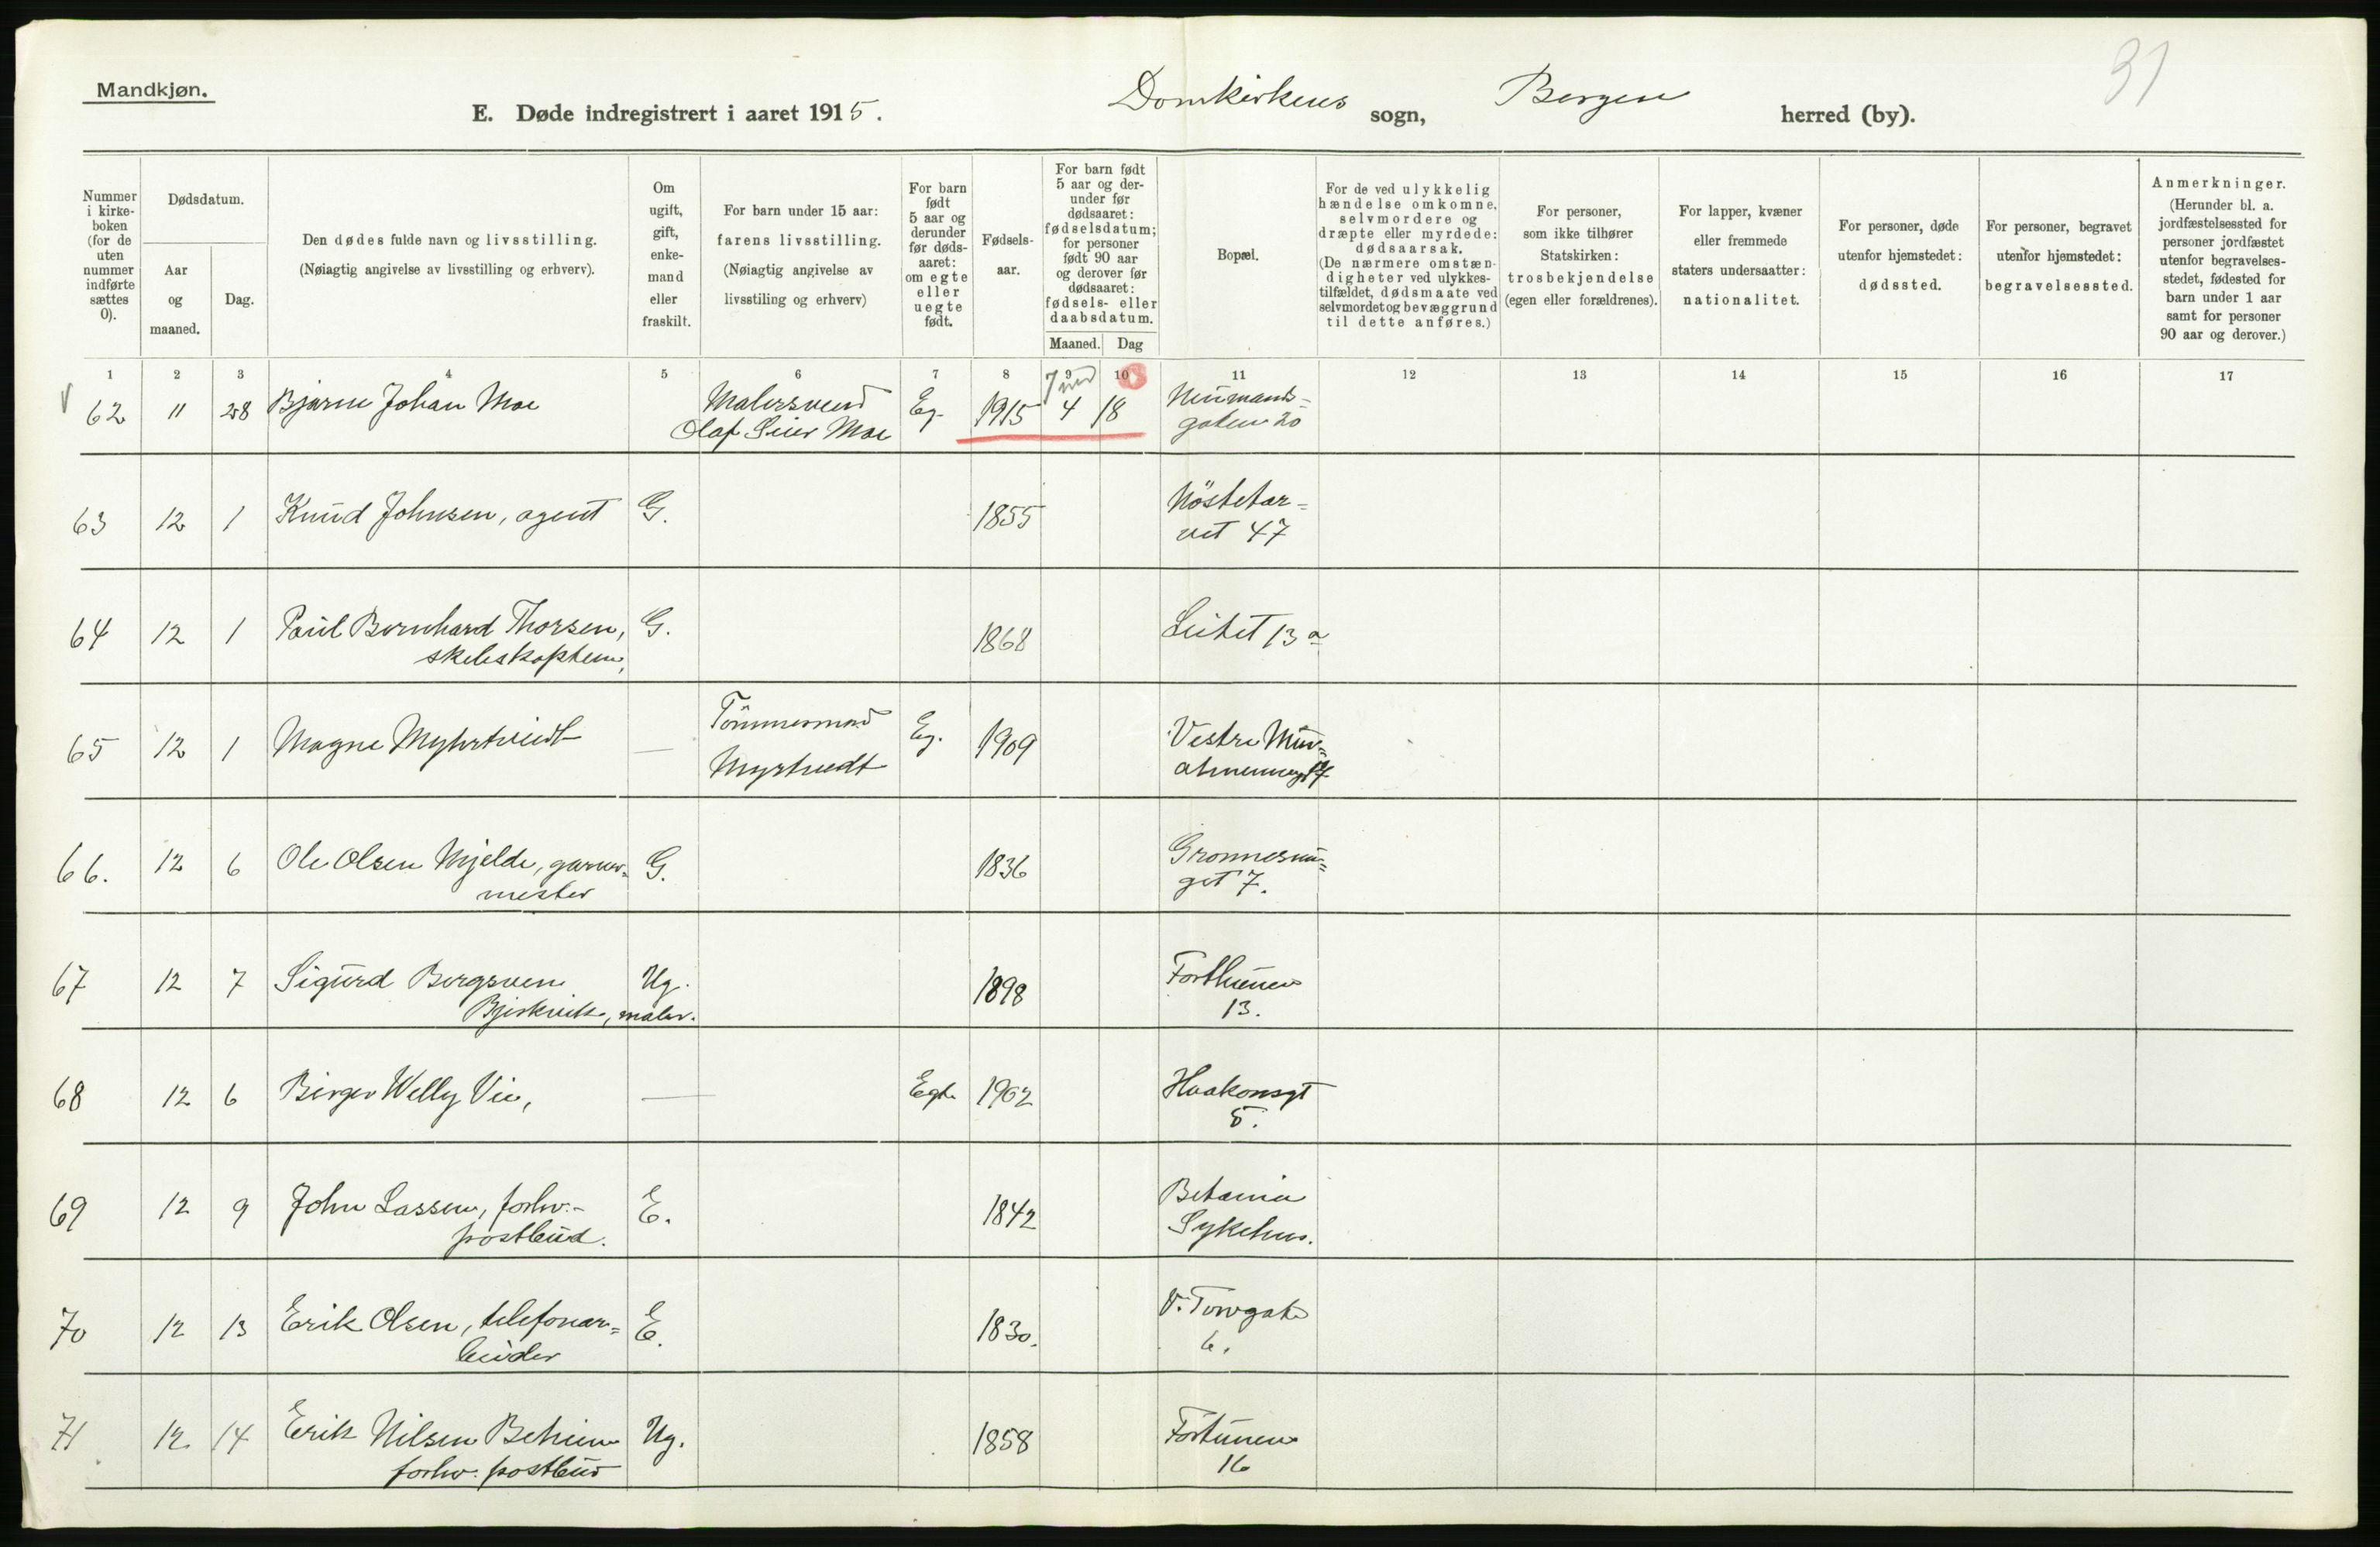 Mandkjøn.
E. Døde indregistrert i aaret 1915. Domkirkens sogn, Bergen herred (by).
31
Nummer i kirkeboken (for de uten nummer indførte sættes 0).
Dødsdatum.
Aar og maaned.
Dag.
Den dødes fulde navn og livsstilling.
(Nøiagtig angivelse av livsstilling og erhverv).
Om ugift, gift, enkemand eller fraskilt.
For barn under 15 aar:
farens livsstilling.
(Nøiagtig angivelse av
livsstiling og erhverv)
For barn født 5 aar og derunder før dødsaaret: om egte eller uegte født.
Fødselsaar.
For barn født 5 aar og derunder før dødsaaret: fødselsdatum; for personer født 90 aar og derover før dødsaaret: fødsels- eller daabsdatum.
Maaned. Dag
Bopæl.
For de ved ulykkelig hændelse omkomne, selvmordere og dræpte eller myrdede: dødsaarsak.
(De nærmere omstændigheter ved ulykkestilfældet, dødsmaate ved selvmordet og bevæggrund til dette anføres.)
For personer, som ikke tilhører Statskirken: trosbekjendelse (egen eller forældrenes).
For lapper, kvæner eller fremmede staters undersaatter: nationalitet.
For personer, døde utenfor hjemstedet: dødssted.
For personer, begravet utenfor hjemstedet: begravelsessted.
Anmerkninger.
(Herunder bl. a. jordfæstelsessted for personer jordfæstet utenfor begravelsesstedet, fødested for barn under 1 aar samt for personer 90 aar og derover.)
1 2 3 4 5 6 7 8 9 10 11 12 13 14 15 16 17
62 11 28 Bjarne Johan Moe Malersvend Eg. 1915 4 18 Neumands-
Olaf Moe gaten 20
63 12 1 Knud Johnsen, agent G. 1855 Nöstetor=
vet 47
64 12 1 Paul Bernhard Thorsen, G. 1868 Leitet 13 a
65 12 1 Magne Myhrtveidt — Tömmermand Eg. 1909 Vestre Mur=
Myrtvedt 
66. 12 6 Ole Olsen Mjelde, garver= G. 1836
mester get 7.
67 12 7 Sigurd Bergsven Ug. 1898 Forthunen
Bjerkvik, maler. 13.
68 12 6 Birger Welly Vie, — Egte 1902 Haakonsgt
5.
69 12 9 John Lassen, forhv.- E. 1842 Betania
postbud. Sykehus.
70 12 13 Erik Olsen, telefonar= E. 1830. V. Torvgate
beider 6.
71 12 14 Erik Nilsen Ug. 1858 Fortunen
forhv. postbud 16